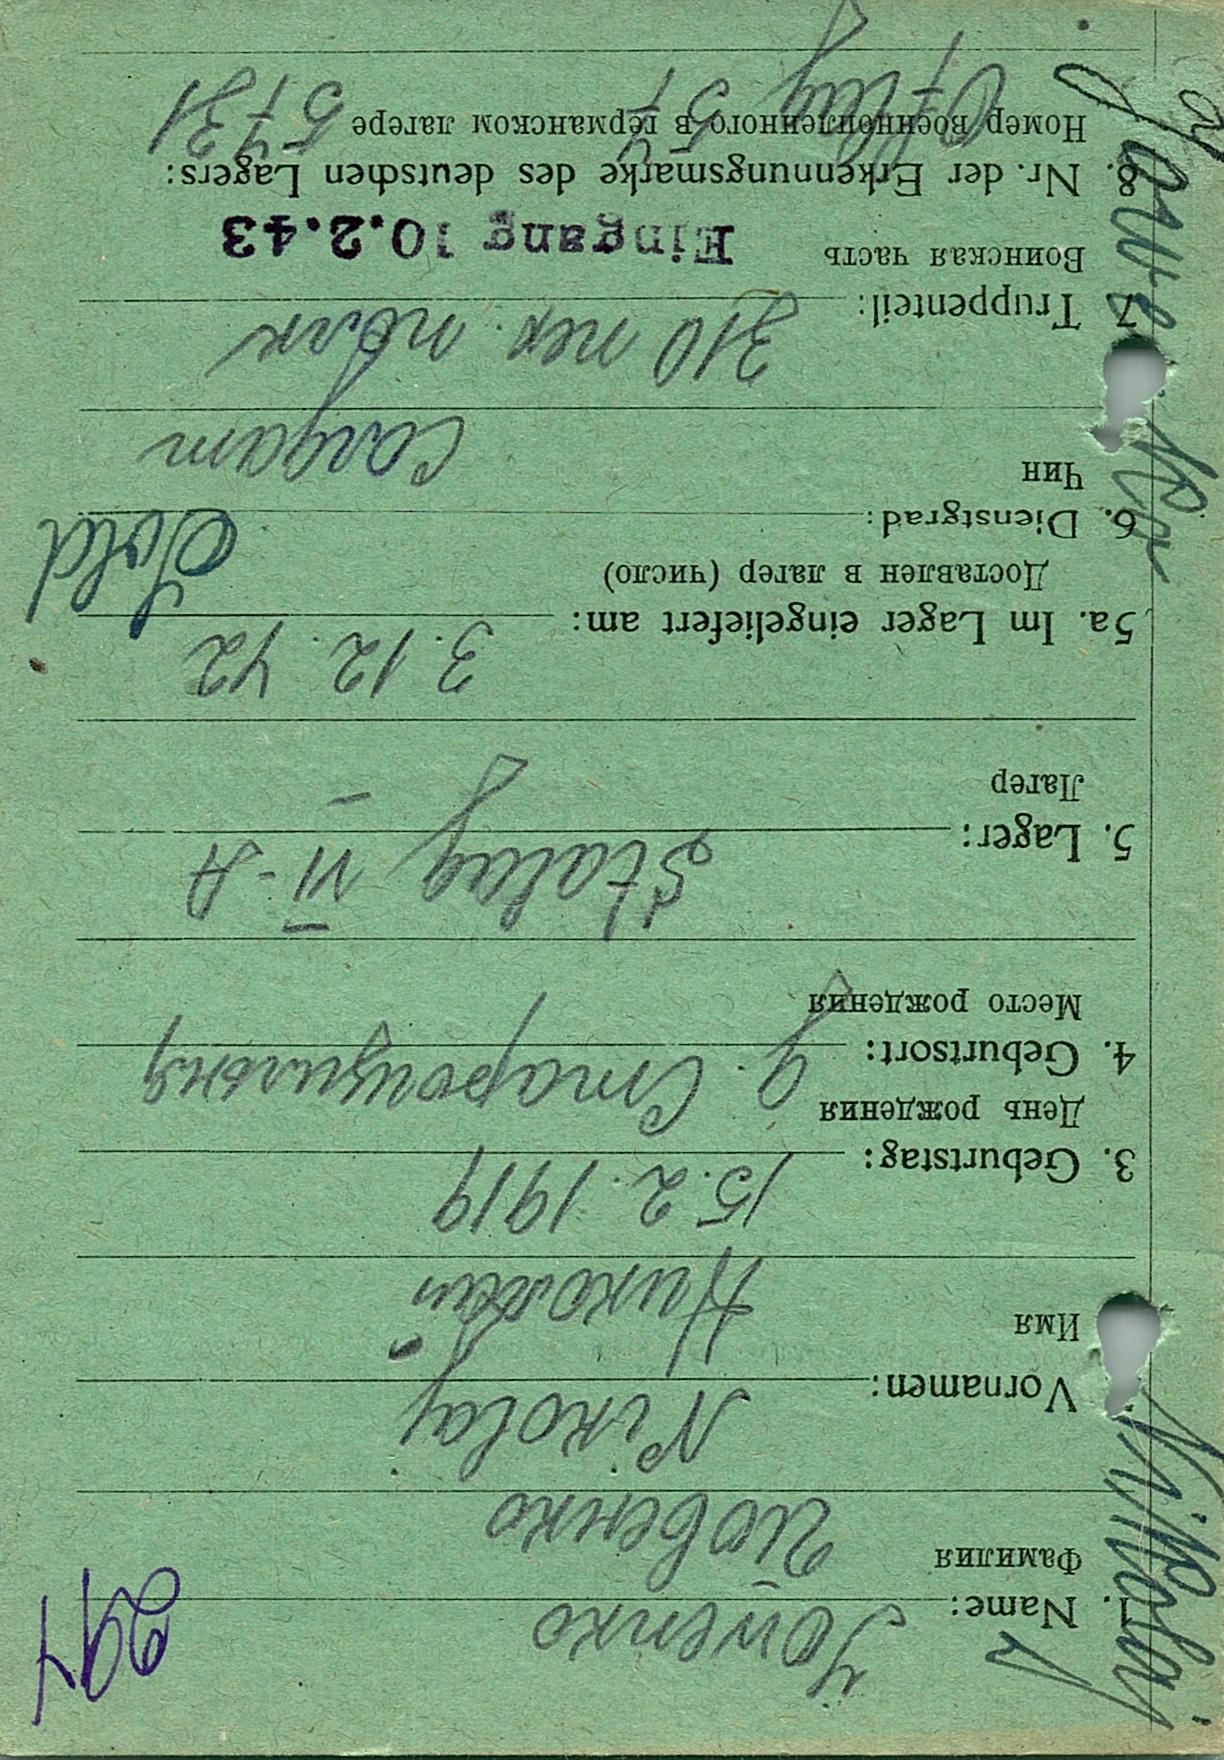 294
1. Name: Jowenko
Фамилия Иовенко
Vornamen: Nikolaj
Имя Николай
3. Geburtstag: 15.2.1919
День рождения
4. Geburtsort: д. Старощильня
Место рождения
5. Lager: Stalag VI-A
Лагер
5a. Im Lager eingeliefert am: 3.12.42
Доставлен в лагер (число)
6. Dienstgrad: Sold
Чин солдат
7. Truppenteil: 310 пех. полк
Воинская часть
Eingang 10.2.43
8. Nr. der Erkennungsmarke des deutschen Lagers:
Номер военнопленного в германском лагере 5731
Oflag 57
Nikolaj